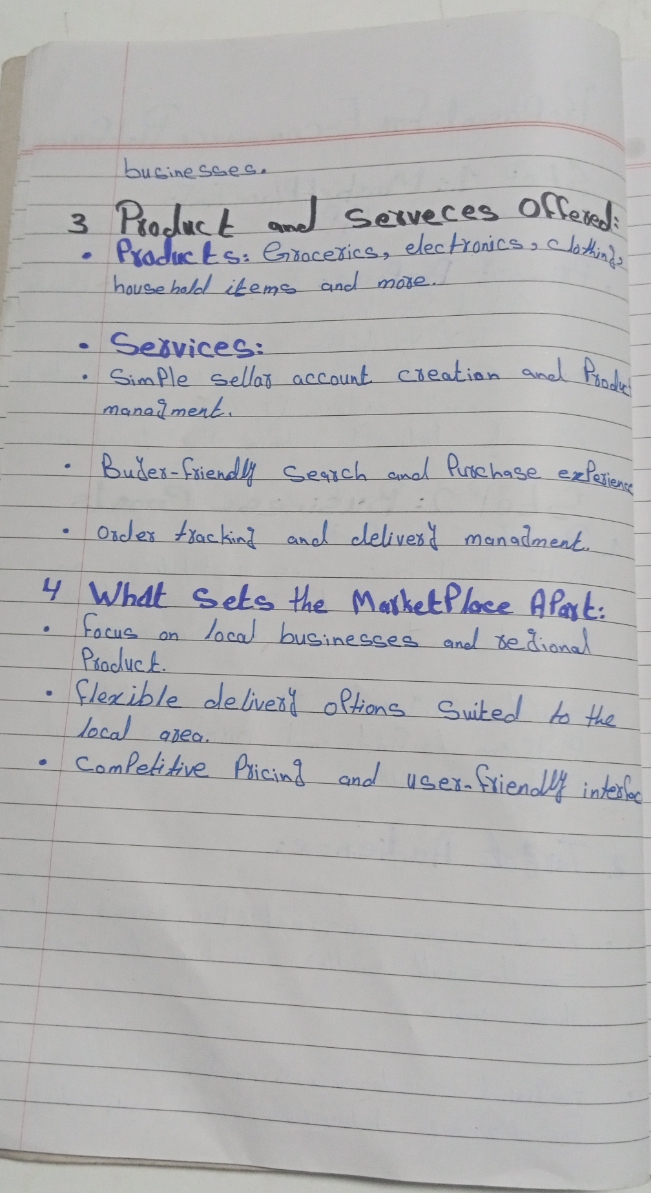 businesses.
3 Product and serveces Offered:
• Products: Groceries, electronics, clothing,
household items and more.
• Services:
• Simple sellar account creation and Produc
managment.
• Buyer-friendly search and Purchase experience
• Order tracking and delivery managment.
4 What Sets the MarketPlace APart:
• Focus on local businesses and regional
Product.
• flexible delivery oPtions suited to the
local area.
• ComPetitive Pricing and user-friendly interfac